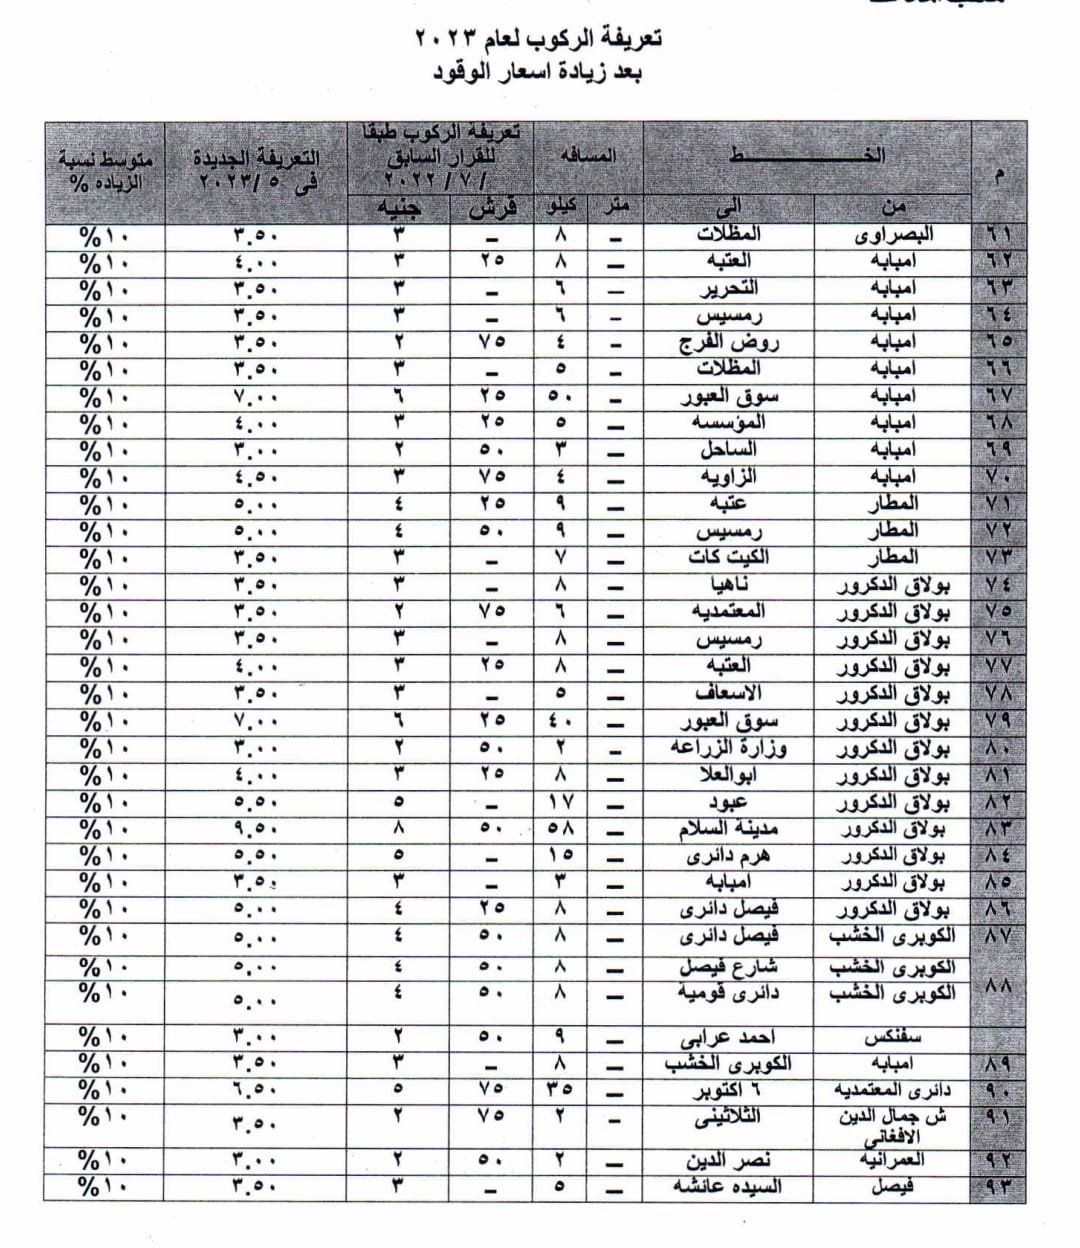 تعريفة الركوب لعام ٢٠٢٣
بعد زيادة اسعار الوقود
م الخـــــــــط المسافه تعريفة الركوب طبقا للقرار السابق / ٧ / ٢٠٢٢ التعريفة الجديدة فى ٥ / ٢٠٢٣ متوسط نسبة الزياده %
من الى متر كيلو قرش جنيه
٦١ البصراوى المظلات – ٨ – ٣ ٣.٥٠ ١٠%
٦٢ امبابه العتبه – ٨ ٢٥ ٣ ٤.٠٠ ١٠%
٦٣ امبابه التحرير – ٦ – ٣ ٣.٥٠ ١٠%
٦٤ امبابه رمسيس – ٦ – ٣ ٣.٥٠ ١٠%
٦٥ امبابه روض الفرج – ٤ ٧٥ ٢ ٣.٥٠ ١٠%
٦٦ امبابه المظلات – ٥ – ٣ ٣.٥٠ ١٠%
٦٧ امبابه سوق العبور – ٥٠ ٢٥ ٦ ٧.٠٠ ١٠%
٦٨ امبابه المؤسسه – ٥ ٢٥ ٣ ٤.٠٠ ١٠%
٦٩ امبابه الساحل – ٣ ٥٠ ٢ ٣.٠٠ ١٠%
٧٠ امبابه الزاويه – ٤ ٧٥ ٣ ٤.٥٠ ١٠%
٧١ المطار عتبه – ٩ ٢٥ ٤ ٥.٠٠ ١٠%
٧٢ المطار رمسيس – ٩ ٥٠ ٤ ٥.٠٠ ١٠%
٧٣ المطار الكيت كات – ٧ – ٣ ٣.٥٠ ١٠%
٧٤ بولاق الدكرور ناهيا – ٨ – ٣ ٣.٥٠ ١٠%
٧٥ بولاق الدكرور المعتمديه – ٦ ٧٥ ٢ ٣.٥٠ ١٠%
٧٦ بولاق الدكرور رمسيس – ٨ – ٣ ٣.٥٠ ١٠%
٧٧ بولاق الدكرور العتبه – ٨ ٢٥ ٣ ٤.٠٠ ١٠%
٧٨ بولاق الدكرور الاسعاف – ٥ – ٣ ٣.٥٠ ١٠%
٧٩ بولاق الدكرور سوق العبور – ٤٠ ٢٥ ٦ ٧.٠٠ ١٠%
٨٠ بولاق الدكرور وزارة الزراعه – ٢ ٥٠ ٢ ٣.٠٠ ١٠%
٨١ بولاق الدكرور ابوالعلا – ٨ ٢٥ ٣ ٤.٠٠ ١٠%
٨٢ بولاق الدكرور عبود – ١٧ – ٥ ٥.٥٠ ١٠%
٨٣ بولاق الدكرور مدينة السلام – ٥٨ ٥٠ ٨ ٩.٥٠ ١٠%
٨٤ بولاق الدكرور هرم دائرى – ١٥ – ٥ ٥.٥٠ ١٠%
٨٥ بولاق الدكرور امبابه – ٣ – ٣ ٣.٥٠ ١٠%
٨٦ بولاق الدكرور فيصل دائرى – ٨ ٢٥ ٤ ٥.٠٠ ١٠%
٨٧ الكوبرى الخشب فيصل دائرى – ٨ ٥٠ ٤ ٥.٠٠ ١٠%
٨٨ الكوبرى الخشب شارع فيصل – ٨ ٥٠ ٤ ٥.٠٠ ١٠%
الكوبرى الخشب دائرى قومية – ٨ ٥٠ ٤ ٥.٠٠ ١٠%
سفنكس احمد عرابي – ٩ ٥٠ ٢ ٣.٠٠ ١٠%
٨٩ امبابه الكوبرى الخشب – ٨ – ٣ ٣.٥٠ ١٠%
٩٠ دائرى المعتمديه ٦ اكتوبر – ٣٥ ٧٥ ٥ ٦.٥٠ ١٠%
٩١ ش جمال الدين الافغاني الثلاثينى – ٢ ٧٥ ٢ ٣.٥٠ ١٠%
٩٢ العمرانيه نصر الدين – ٢ ٥٠ ٢ ٣.٠٠ ١٠%
٩٣ فيصل السيده عائشه – ٥ – ٣ ٣.٥٠ ١٠%